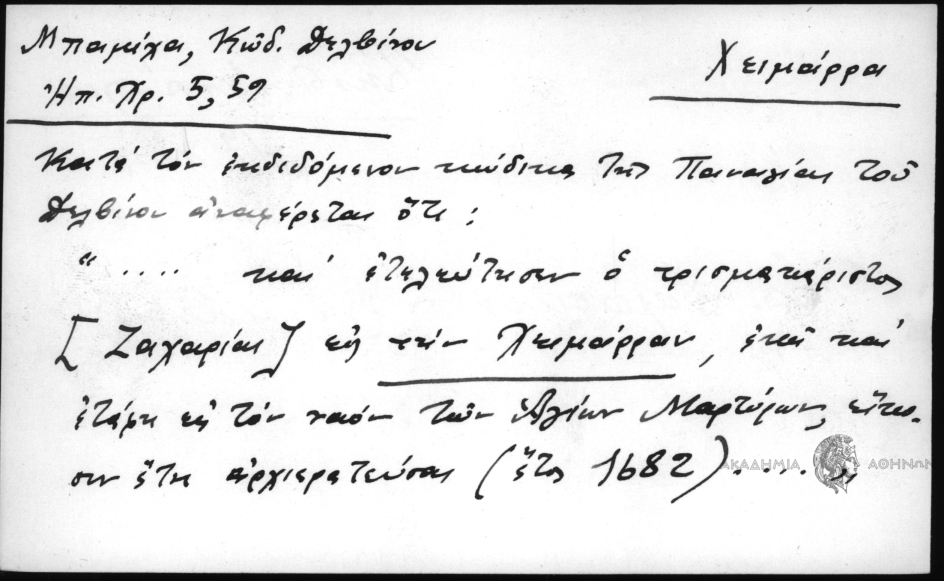 Μπαμίχα, Κώδ. Δελβίνου
Χειμάρρα
Ἠπ. Χρ. 5, 59
Κατά τόν ἐκδιδόμενον κώδικα τῆς Παναγίας τοῦ
Δελβίνου ἀναφέρεται ὅτι :
“ .... καί ἐτελεύτησεν ὁ τρισμακάριστος
[ Ζαχαρίας ] εἰς τήν Χειμάρραν, ἐκεῖ καί
ἐτάφη εἰς τόν ναόν τῶν Ἁγίων Μαρτύρων, εἴκο-
σιν ἔτη ἀρχιερατεύσας (ἔτος 1682) .... „
ΑΚΑΔΗΜΙΑ ΑΘΗΝΩΝ